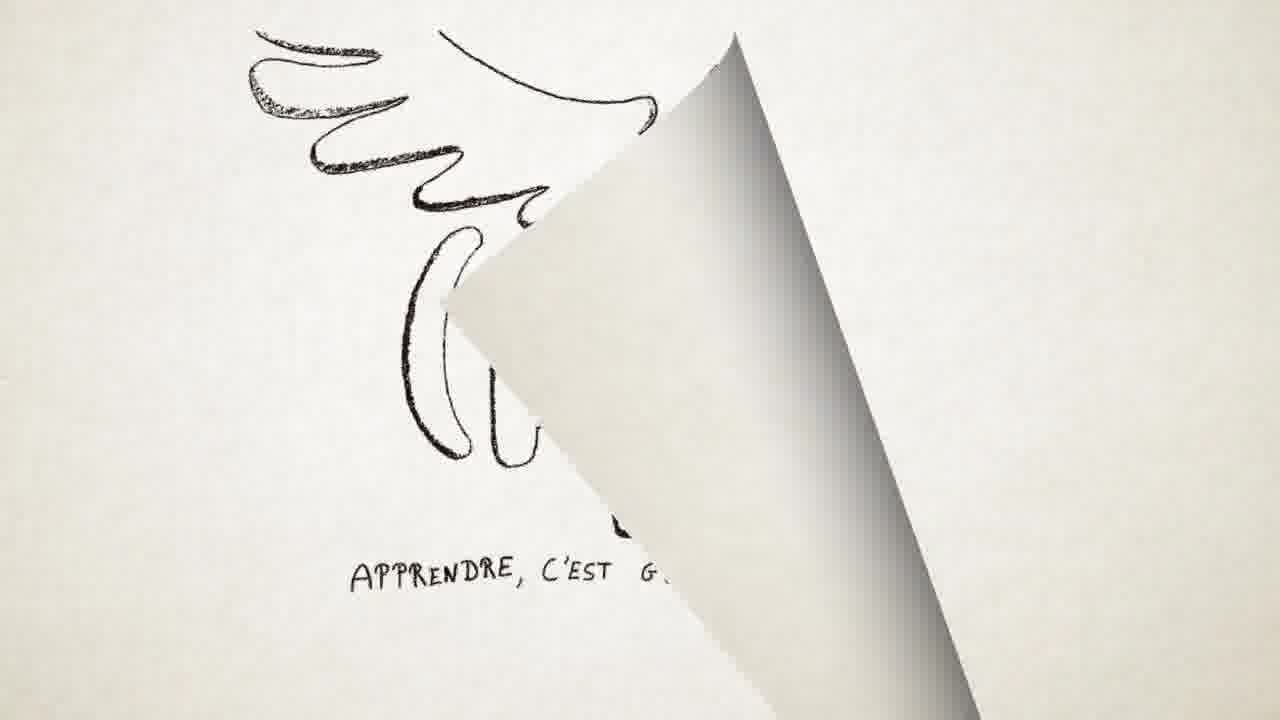 APPRENDRE, C'EST